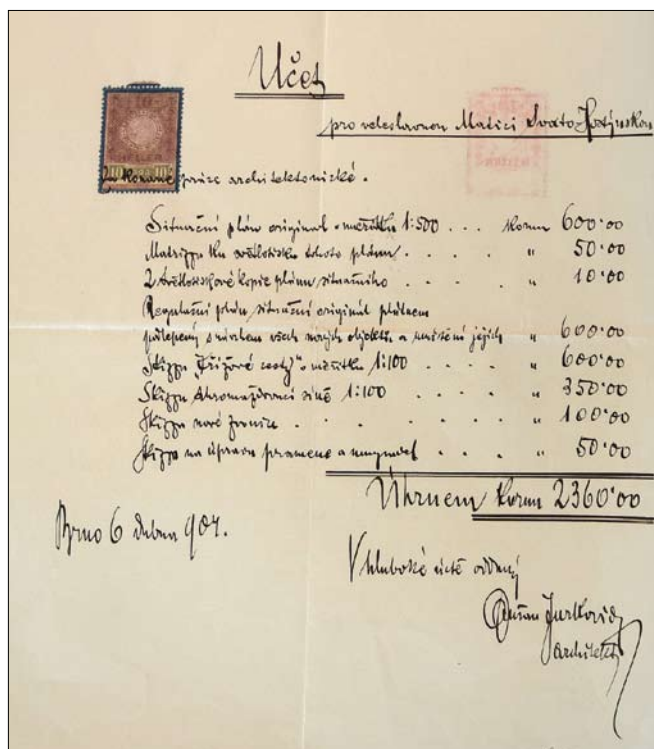 Účet
pro veleslavnou Matici Svato-Hostýnskou
Za konané práce architektonické.
Situační plán original v měřítku 1:500 . . . Korun 600·00
Matrizza ku světlotisku tohoto plánu . . . . " 50·00
2 světlotiskové kopie plánu situačního . . " 10·00
Regulační plán situační originál plátnem
podlepený s návrhem všech nových objektů a umístění jejich " 600·00
Skizza "Křížové cesty" v měřítku 1:100 . . . . " 600·00
Skizza shromažďovací síně 1:100 . . . . " 350·00
Skizza nové zvonice . . . . . . " 100·00
Skizza na úpravu pramene a . . . " 50·00
Úhrnem Korun 2360·00
Brno 6 dubna 904.
V hluboké úctě oddaný
Dušan Jurkovič
architekt